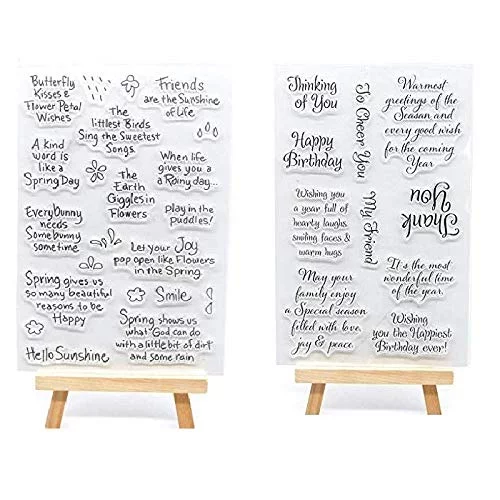 Butterfly
Kisses &
Flower Petal
Wishes
Friends
are the Sunshine
of Life
The
littlest Birds
Sing the Sweetest
Songs.
A kind
word is
like a
Spring Day
When life
gives you a
a Rainy day...
The
Earth
Giggles in
Flowers
Every Bunny
needs
Some bunny
sometime
Play in the
puddles!
Let your Joy
pop open like Flowers
in the Spring.
Spring gives us
so many beautiful
reasons to be
Happy
Smile
Spring shows us
what God can do
with a little bit of dirt
and some rain
Hello Sunshine
Thinking
of You
To Cheer You
Warmest
greetings of the
Seasan and
every good wish
for the coming
Year
Happy
Birthday
Thank
You
Wishing you
a year full of
hearty laughs,
smiling faces &
warm hugs
My Friend
It's the most
wonderful time
of the year.
May your
family enjoy
a Special season
filled with love,
joy & peace.
Wishing
you the Happiest
Birthday ever!